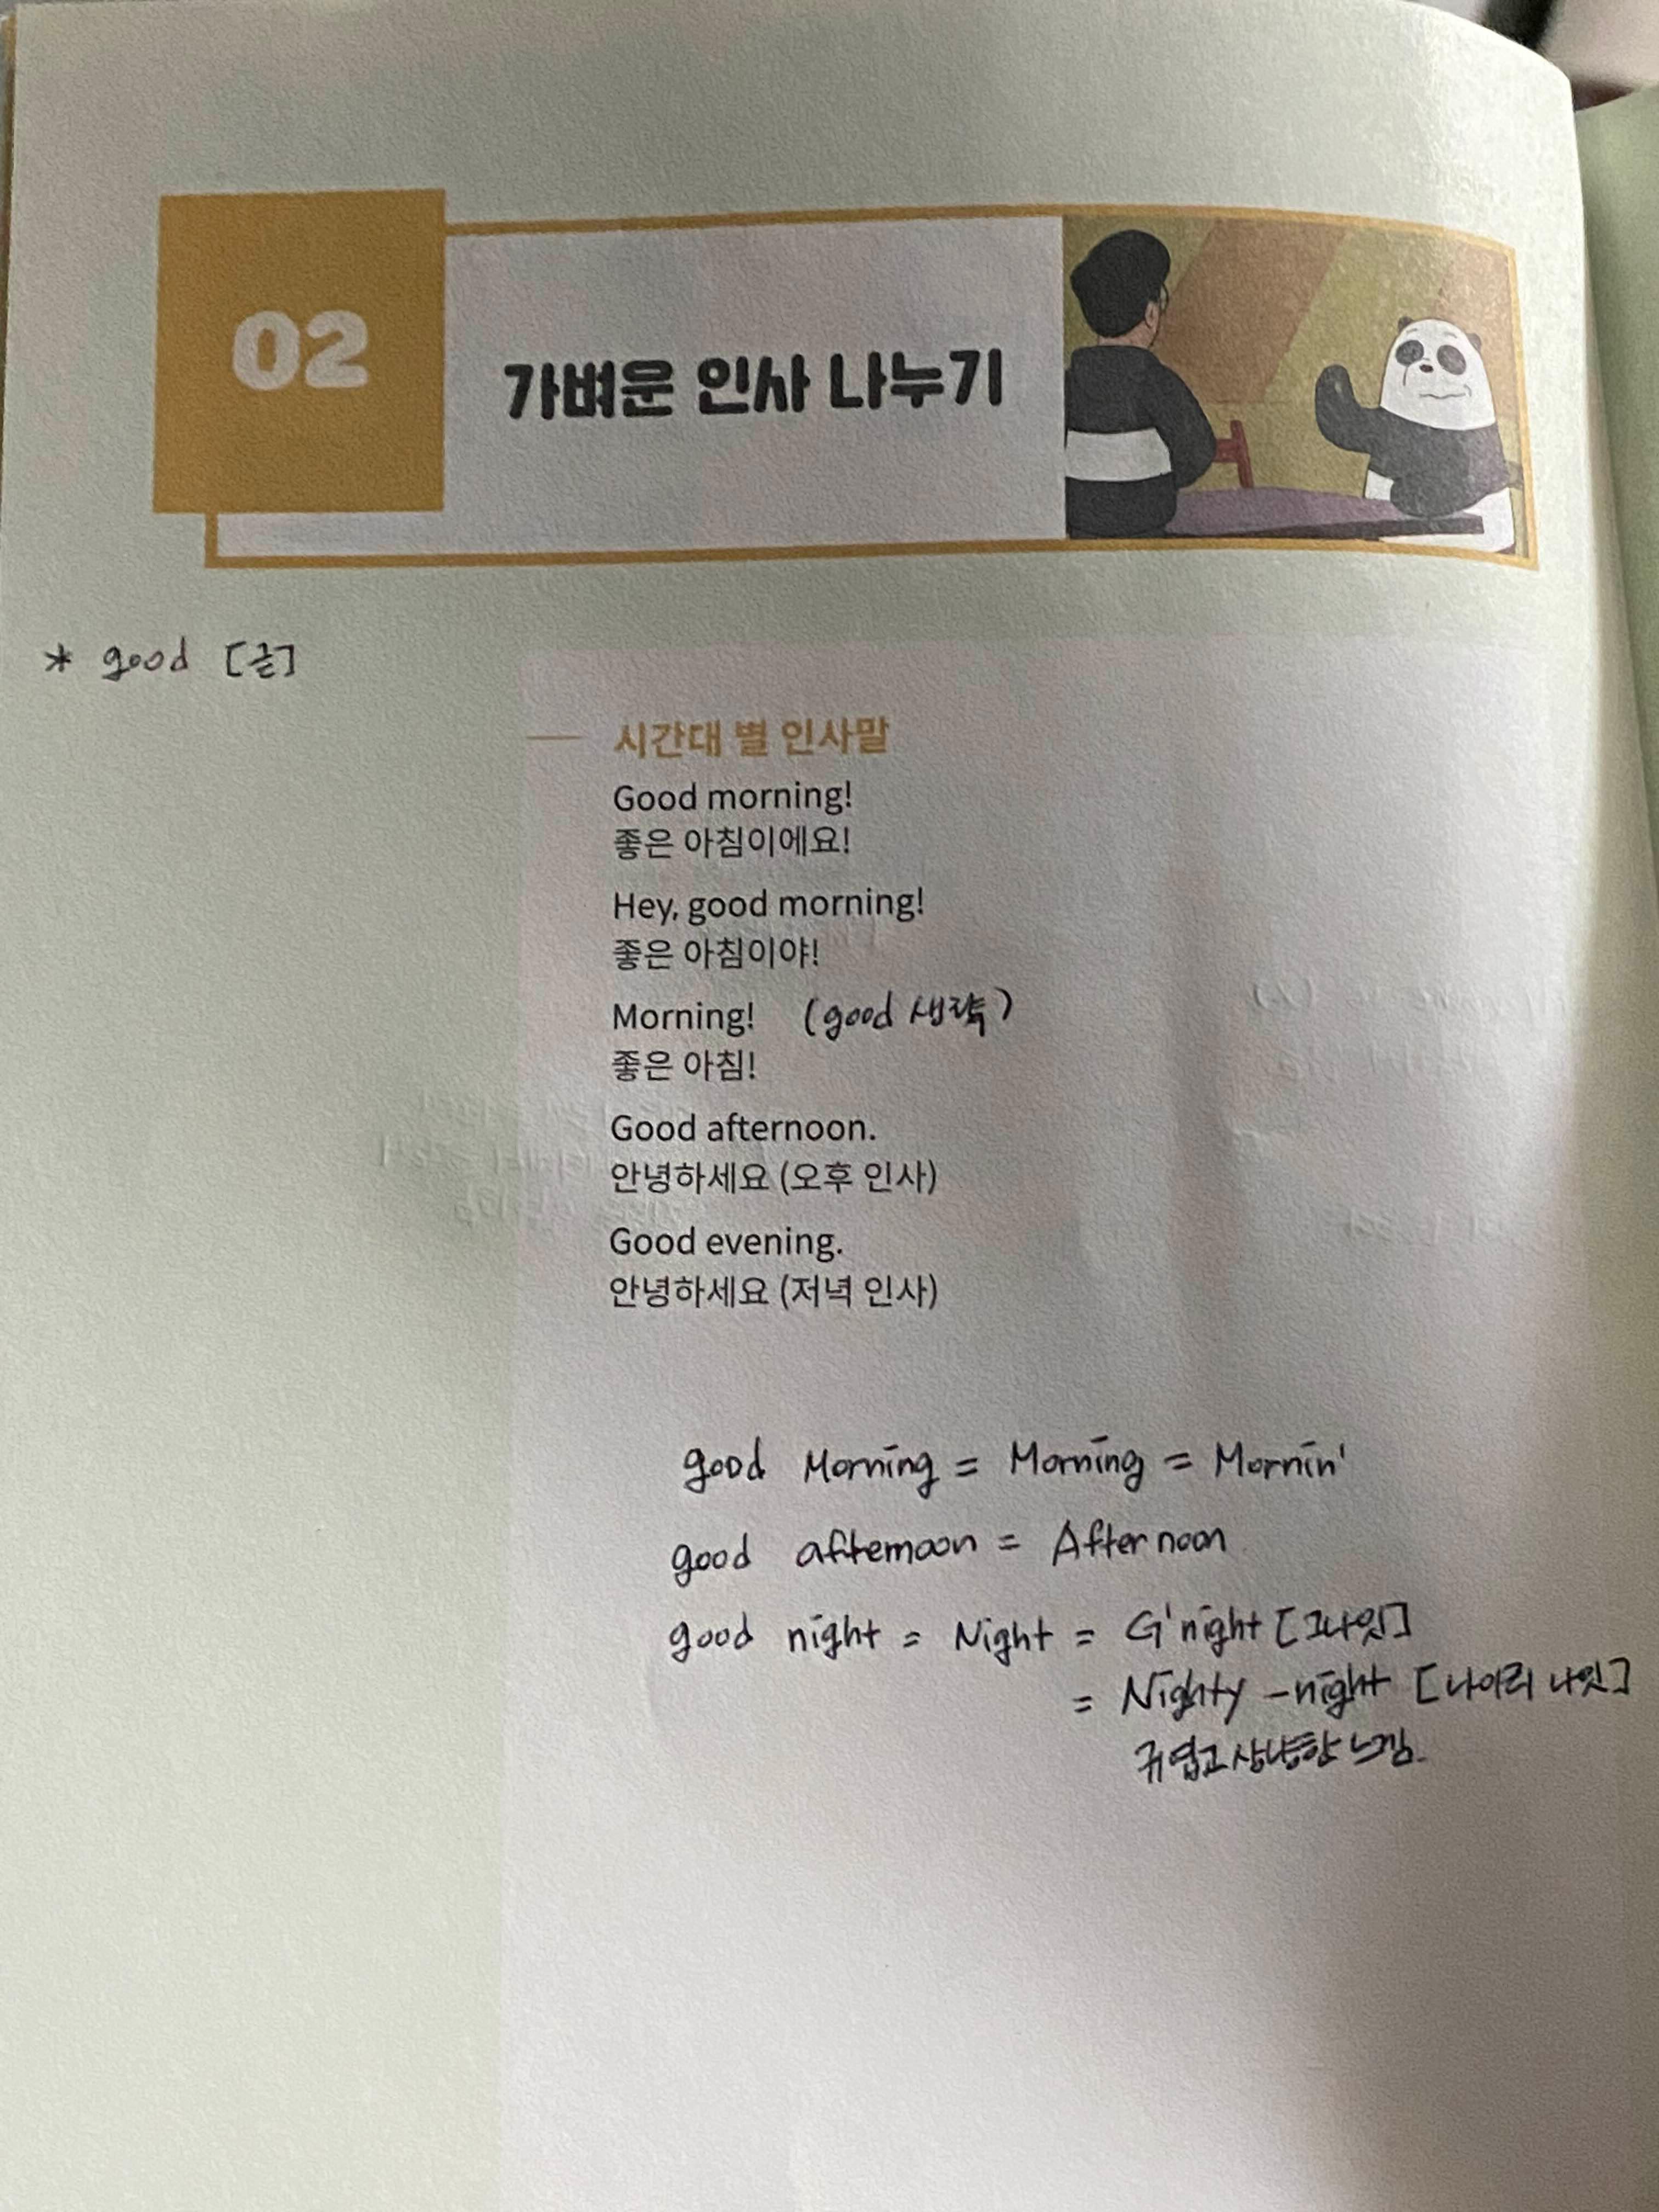 02
가벼운 인사 나누기
* good [귿]
시간대 별 인사말
Good morning!
좋은 아침이에요!
Hey, good morning!
좋은 아침이야!
Morning! (good 생략)
좋은 아침!
Good afternoon.
안녕하세요 (오후 인사)
Good evening.
안녕하세요 (저녁 인사)
good Morning = Morning = Mornin'
good afternoon = Afternoon
good night = Night = G'night [그나잇]
= Nighty -night [나이리 나잇]
귀엽고 상냥한 느낌.